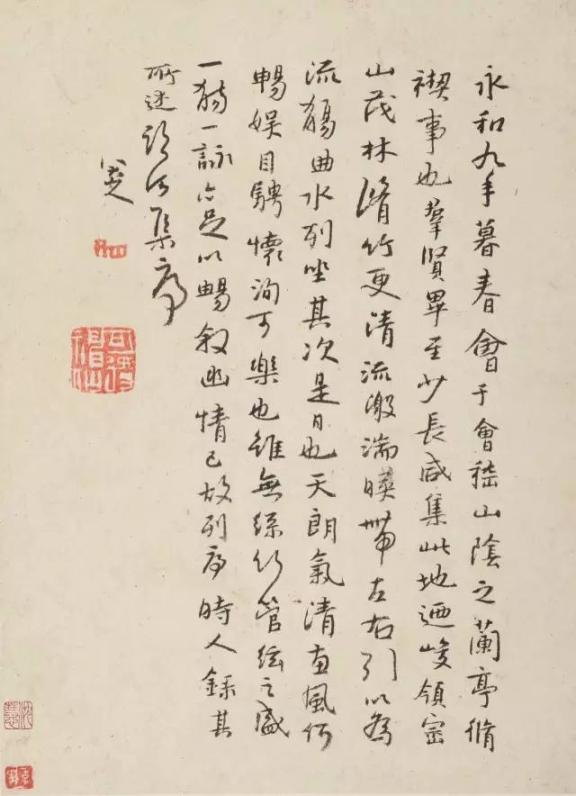 永和九年暮春會于會嵇山陰之蘭亭脩
禊事也羣賢畢至少長咸集此地迺峻領崇
山茂林脩竹更清流激湍暎帶左右引以為
流觴曲水列坐其次是日也天朗氣清惠風和
暢娛目騁懷洵可樂也雖無絲竹管絃之盛
一觴一詠亦足以暢敘幽情已故列序時人錄其
所述臨河集序
八大山人